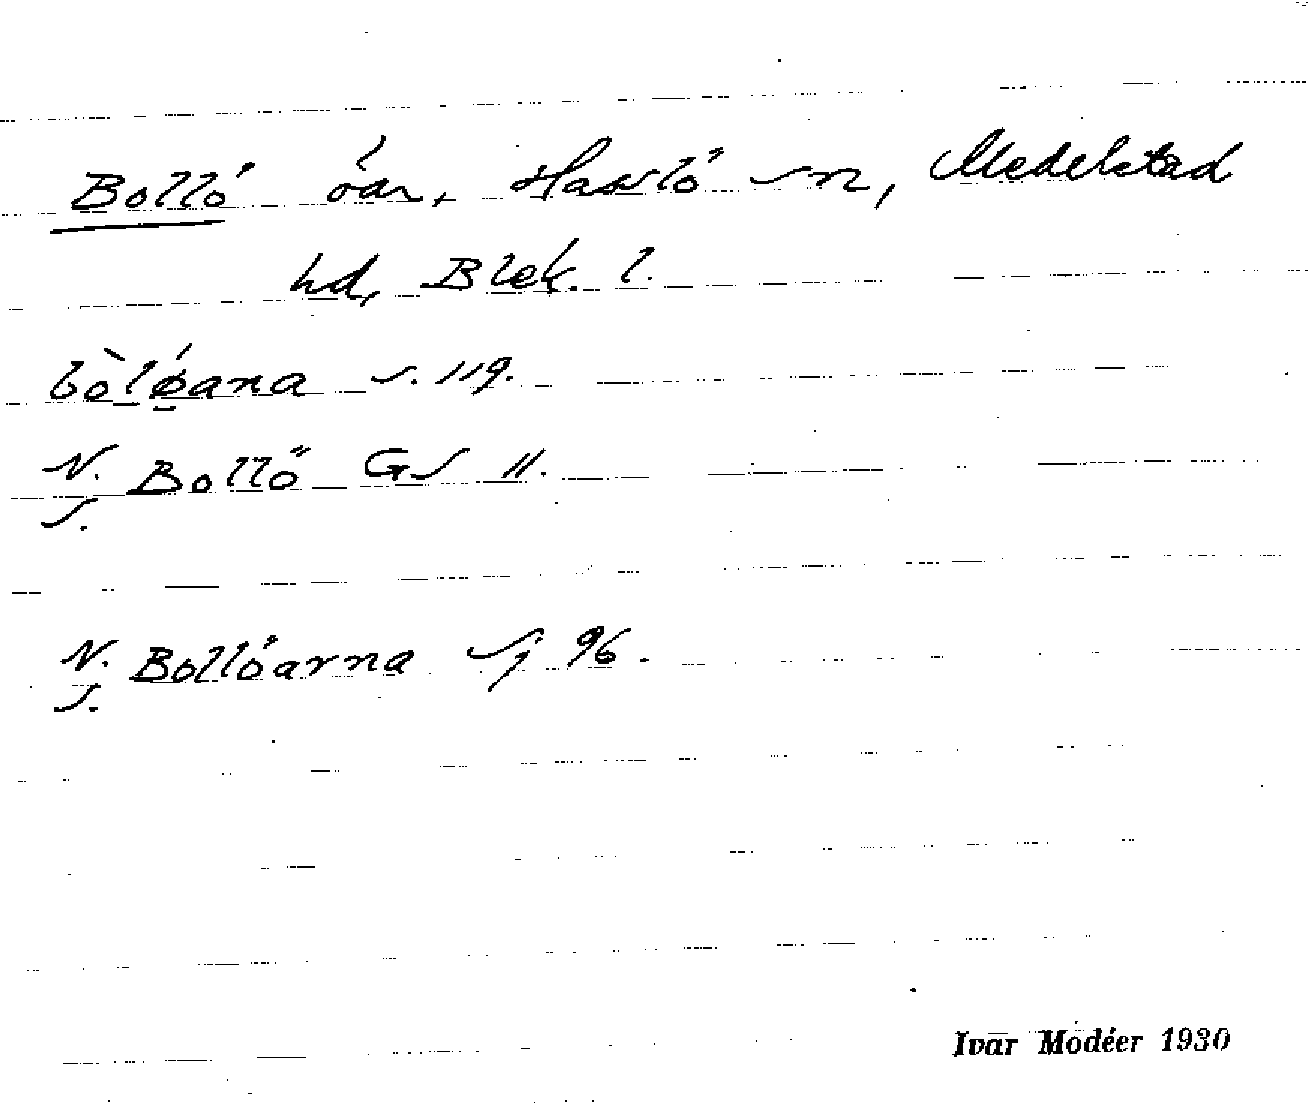 Bollö öar, Hasslö sn, Medelstad
hd, Blek. l.
bòlǿana s. 119.
N. Bollö GS 11.
S.
N. Bollöarna Sj 96.
S.
Ivar Modéer 1930